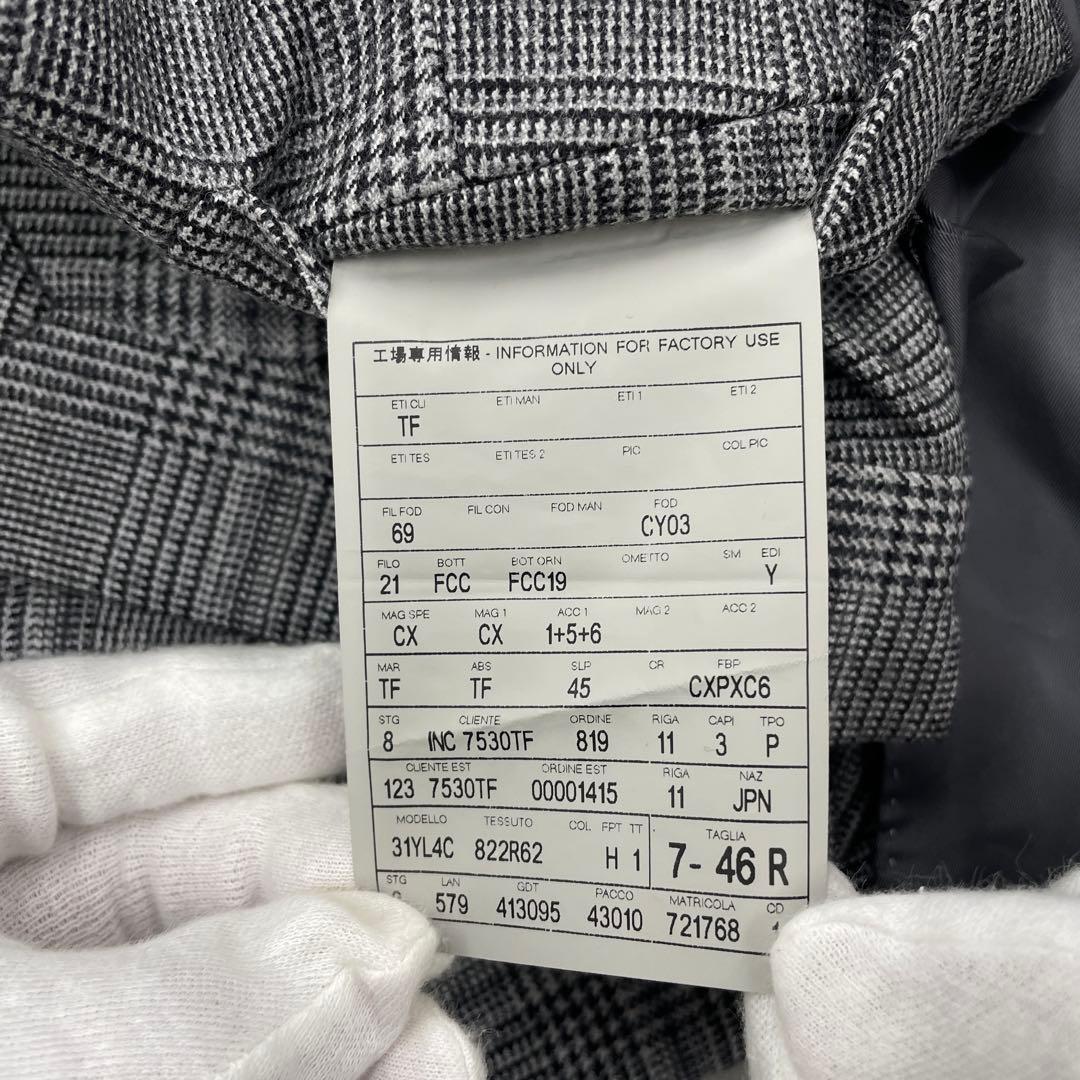 工場専用情報 - INFORMATION FOR FACTORY USE
ONLY
ETI CLI ETI MAN ETI 1 ETI 2
TF
ETI TES ETI TES 2 PIC COL PIC
FIL FOD FIL CON FOD MAN FOD
69 CY03
FILO BOTT BOT ORN OMETTO SM EDI
21 FCC FCC19 Y
MAG SPE MAG 1 ACC 1 MAG 2 ACC 2
CX CX 1+5+6
MAR ABS SLP CR FBP
TF TF 45 CXPXC6
STG CLIENTE ORDINE RIGA CAPI TPO
8 INC 7530TF 819 11 3 P
CLIENTE EST ORDINE EST RIGA NAZ
123 7530TF 00001415 11 JPN
MODELLO TESSUTO COL FPT TT TAGLIA
31YL4C 822R62 H 1 7- 46 R
STG LAN GDT PACCO MATRICOLA CD
579 413095 43010 721768